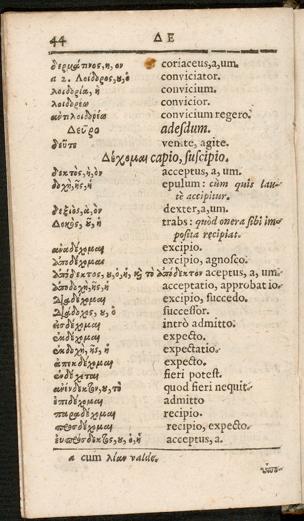 44 ΔΕ
δερμάτινος, η, ον coriaceus, a, um.
a 2. Λοίδορος, ου, ὁ conviciator.
λοιδορία, ἡ convicium.
λοιδορέω convicior.
ἀντιλοιδορέω convicium regero.
Δεῦρο adesdum.
δεῦτε venite, agite.
Δέχομαι capio, suscipio.
δεκτὸς, ἡ, ὸν acceptus, a, um.
δοχὴ, ῆς, ἡ epulum: cùm quis lau-
tè accipitur.
δεξιὸς, ὰ, ὸν dexter, a, um.
Δοκὸς, οῦ, ἡ trabs: quòd onera sibi im-
posita recipiat.
ἀναδέχομαι excipio.
ἀποδέχομαι excipio, agnosco.
ἀπόδεκτος, ου, ὁ, ἡ, καὶ τὸ ἀπόδεκτον aceptus, a, um.
ἀποδοχὴ, ῆς, ἡ acceptatio, approbatio.
διαδέχομαι excipio, succedo.
διάδοχος, ου, ὁ successor.
εἰσδέχομαι intrò admitto.
ἐκδέχομαι expecto.
ἐκδοχὴ, ῆς, ἡ expectatio.
ἀπεκδέχομαι expecto.
ἐνδέχεται fieri potest.
ἀνένδεκτον, ου, τὸ quod fieri nequit.
ἐπιδέχομαι admitto
παραδέχομαι recipio.
προσδέχομαι recipio, expecto.
εὐπρόσδεκτος, ου, ὁ, ἡ acceptus, a.
a cum λίαν valde.